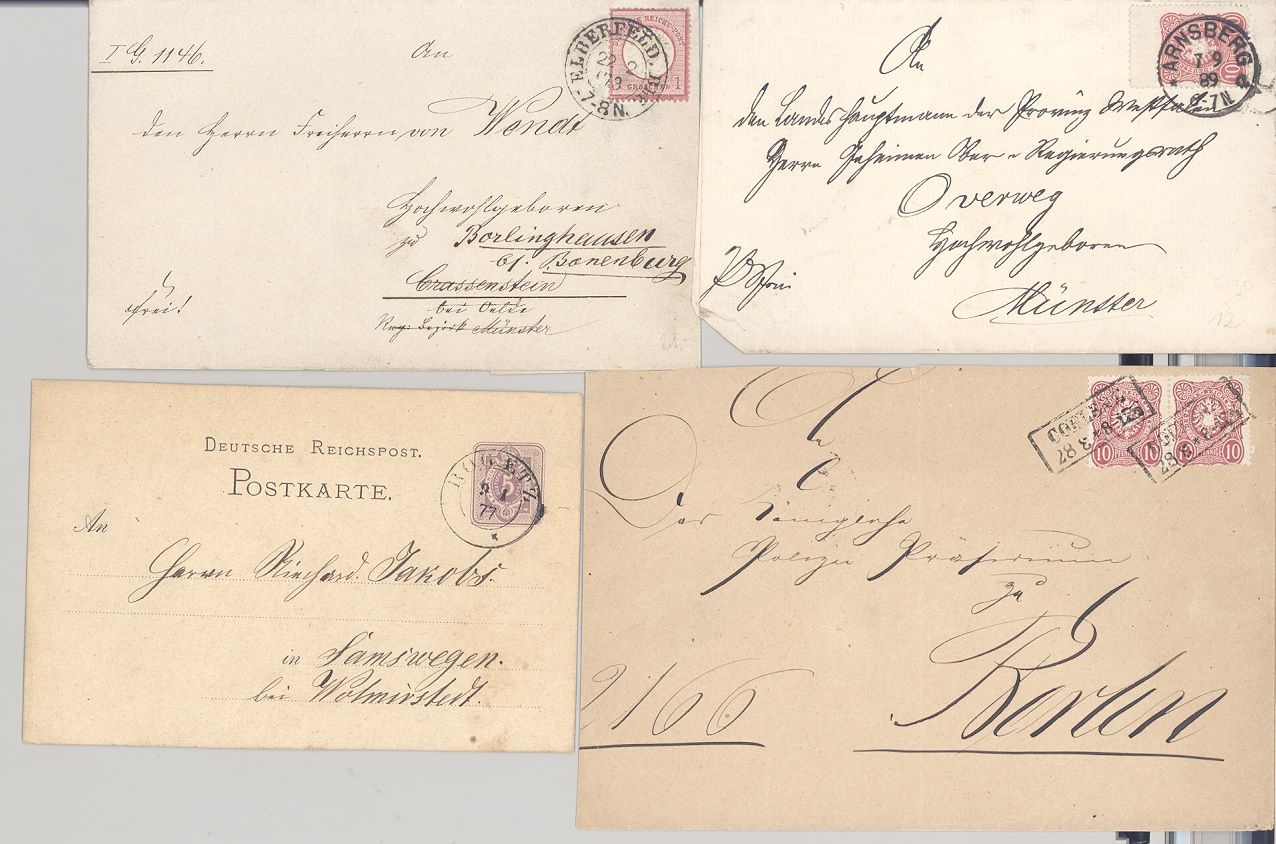 I G. 1146.
An
den Herrn Freiherrn von Wendt
Hochwohlgeboren
zu Borlinghausen
bf. Bonenburg
Crassenstein
bei Oelde
Reg: Bezirk Münster
frei!
REICHS-POST
1 GROSCHEN 1
ELBERFELD.
7-8N.
An
den Landeshauptmann der Provinz Westfalen
Herrn Geheimen Ober-Regierungsrath
Overweg
Hochwohlgeboren
Münster
12
10
ARNSBERG
7 9
89
6-7N
DEUTSCHE REICHSPOST.
POSTKARTE.
5
ROGAETZ
9 1
77
An
Herrn Riechard Jakobs.
in Samswegen.
bei Wolmirstedt.
An
Das Königliche
Polizei Präsidium
zu
Berlin
2166
10 10
10 10
28 3
28 3